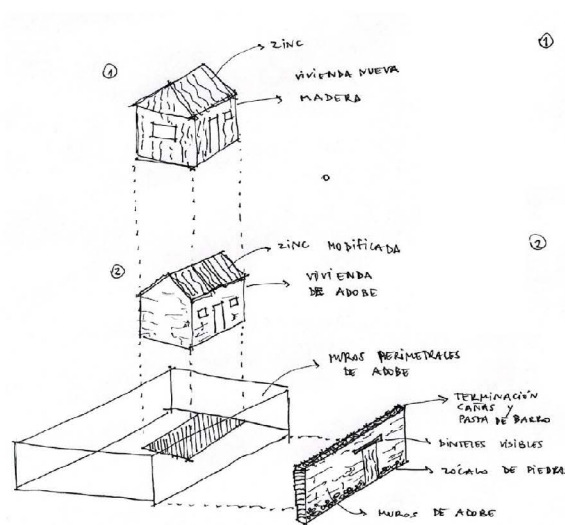 ① ZINC ①
VIVIENDA NUEVA
MADERA
o
② ZINC MODIFICADA ②
VIVIENDA
DE ADOBE
MUROS PERIMETRALES
DE ADOBE
TERMINACIÓN
CAÑAS y
PASTA DE BARRO
DINTELES VISIBLES
ZÓCALO DE PIEDRA
MUROS DE ADOBE